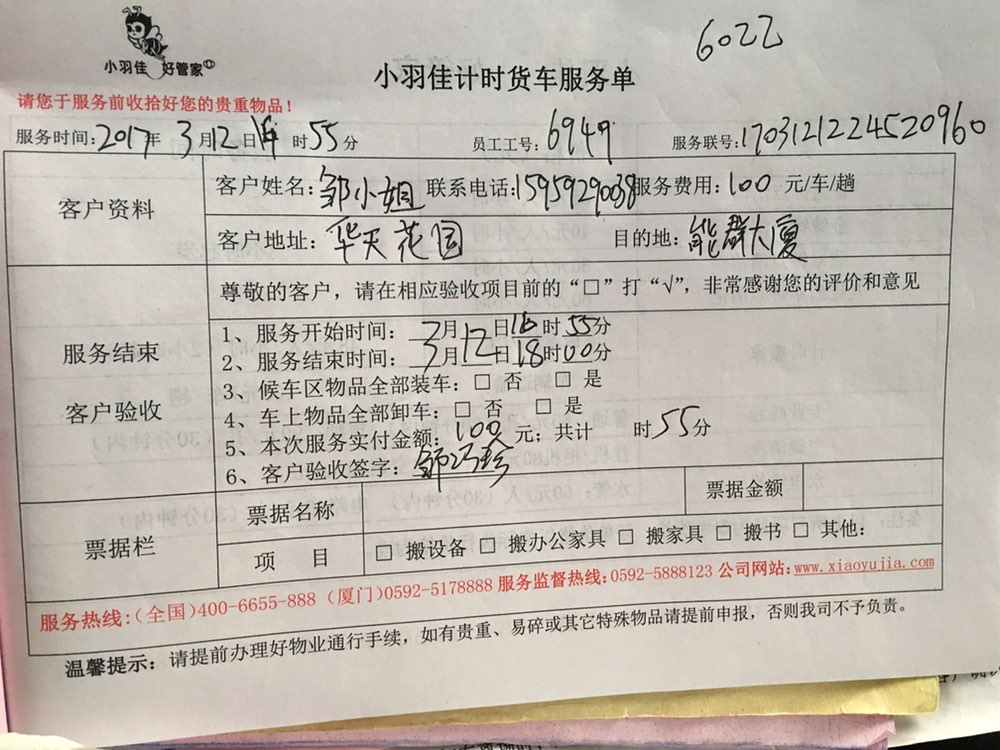 6022
小羽佳 好管家
小羽佳计时货车服务单
请您于服务前收拾好您的贵重物品！
服务时间：2017年 3月12日 时55分 员工工号：6949 服务联号：1703121224520960
客户资料
客户姓名：邹小姐 联系电话：15959290038 服务费用：100 元/车/趟
客户地址：华天花园 目的地：能群大厦
服务结束
客户验收
尊敬的客户，请在相应验收项目前的“□”打“√”，非常感谢您的评价和意见
1、服务开始时间：3月12日16时55分
2、服务结束时间：3月12日18时00分
3、候车区物品全部装车：□ 否 □ 是
4、车上物品全部卸车：□ 否 □ 是
5、本次服务实付金额：100 元；共计 时55分
6、客户验收签字：邹
票据栏
票据名称 票据金额
项 目 □ 搬设备 □ 搬办公家具 □ 搬家具 □ 搬书 □ 其他：
服务热线：(全国)400-6655-888 (厦门)0592-5178888 服务监督热线：0592-5888123 公司网站：www.xiaoyujia.com
温馨提示：请提前办理好物业通行手续，如有贵重、易碎或其它特殊物品请提前申报，否则我司不予负责。